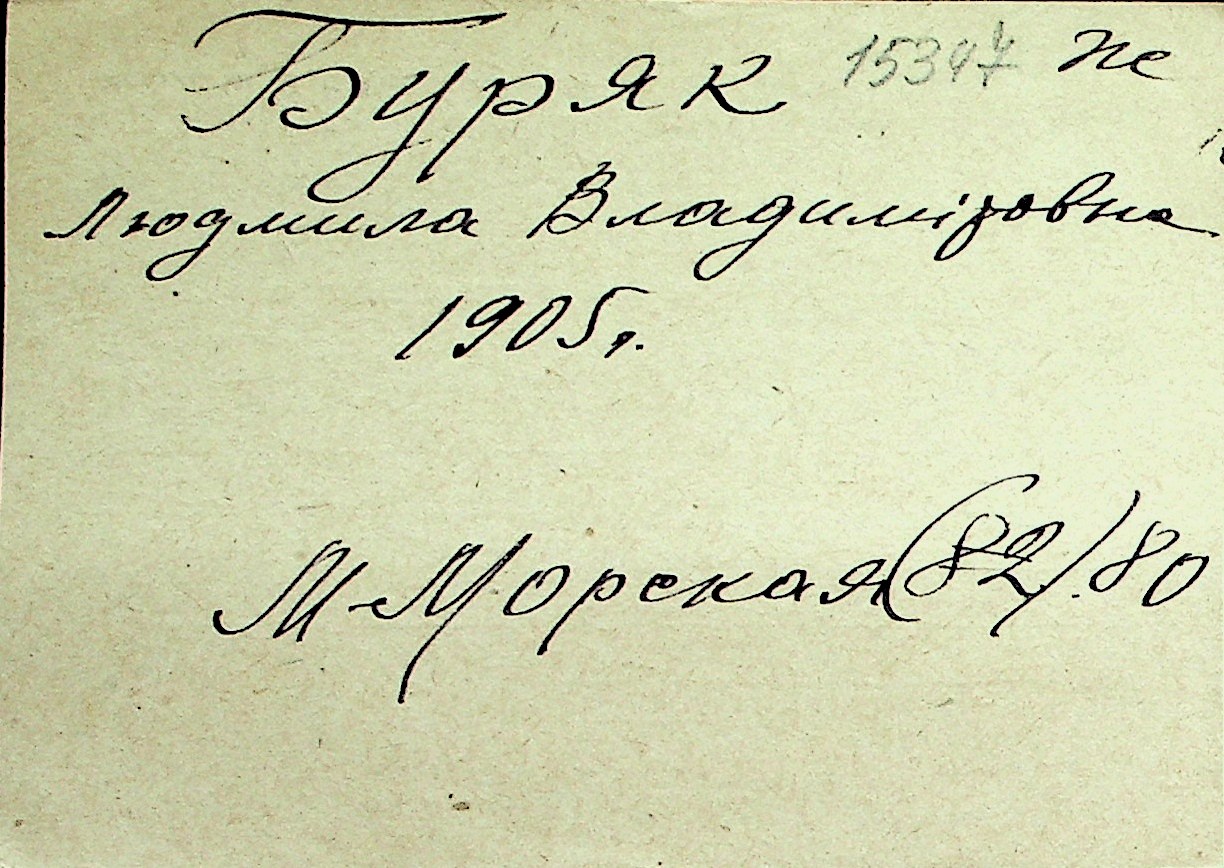 Буряк 15347 не
Людмила Владимiровна
1905 г.
М-Морская (82) 80